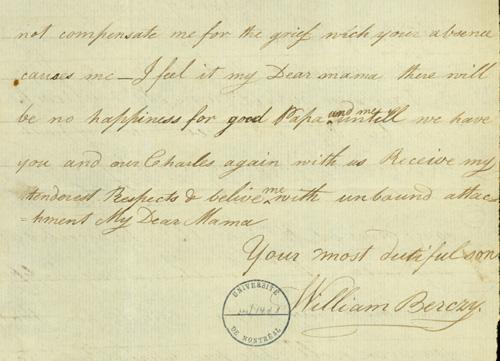 not compensate me for the grief wich your absence
causes me — I feel it my Dear mama there will
be no happiness for good Papa and me untill we have
you and our Charles again with us Receive my
tenderest Respects & belive me with unbound attac
=hment My Dear Mama
Your most dutiful son
William Berczy.
UNIVERSITÉ
DE MONTRÉAL